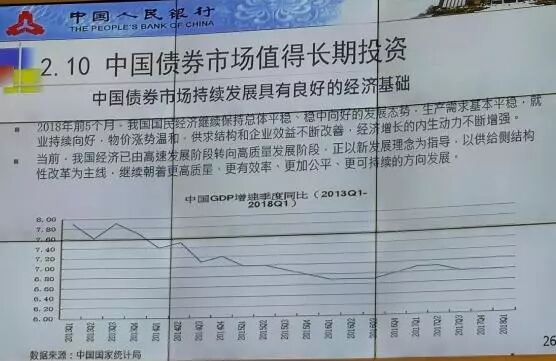 中国人民银行
THE PEOPLE'S BANK OF CHINA
2.10 中国债券市场值得长期投资
中国债券市场持续发展具有良好的经济基础
2018年前5个月，我国国民经济继续保持总体平稳、稳中向好的发展态势，生产需求基本平稳，就
业持续向好，物价涨势温和，供求结构和企业效益不断改善，经济增长的内生动力不断增强。
当前，我国经济已由高速发展阶段转向高质量发展阶段，正以新发展理念为指导，以供给侧结构
性改革为主线，继续朝着更高质量、更有效率、更加公平、更可持续的方向发展。
中国GDP增速季度同比（2013Q1-
2018Q1）
8.00
7.80
7.60
7.40
7.20
7.00
6.80
6.60
6.40
6.20
6.00
数据来源：中国国家统计局
26